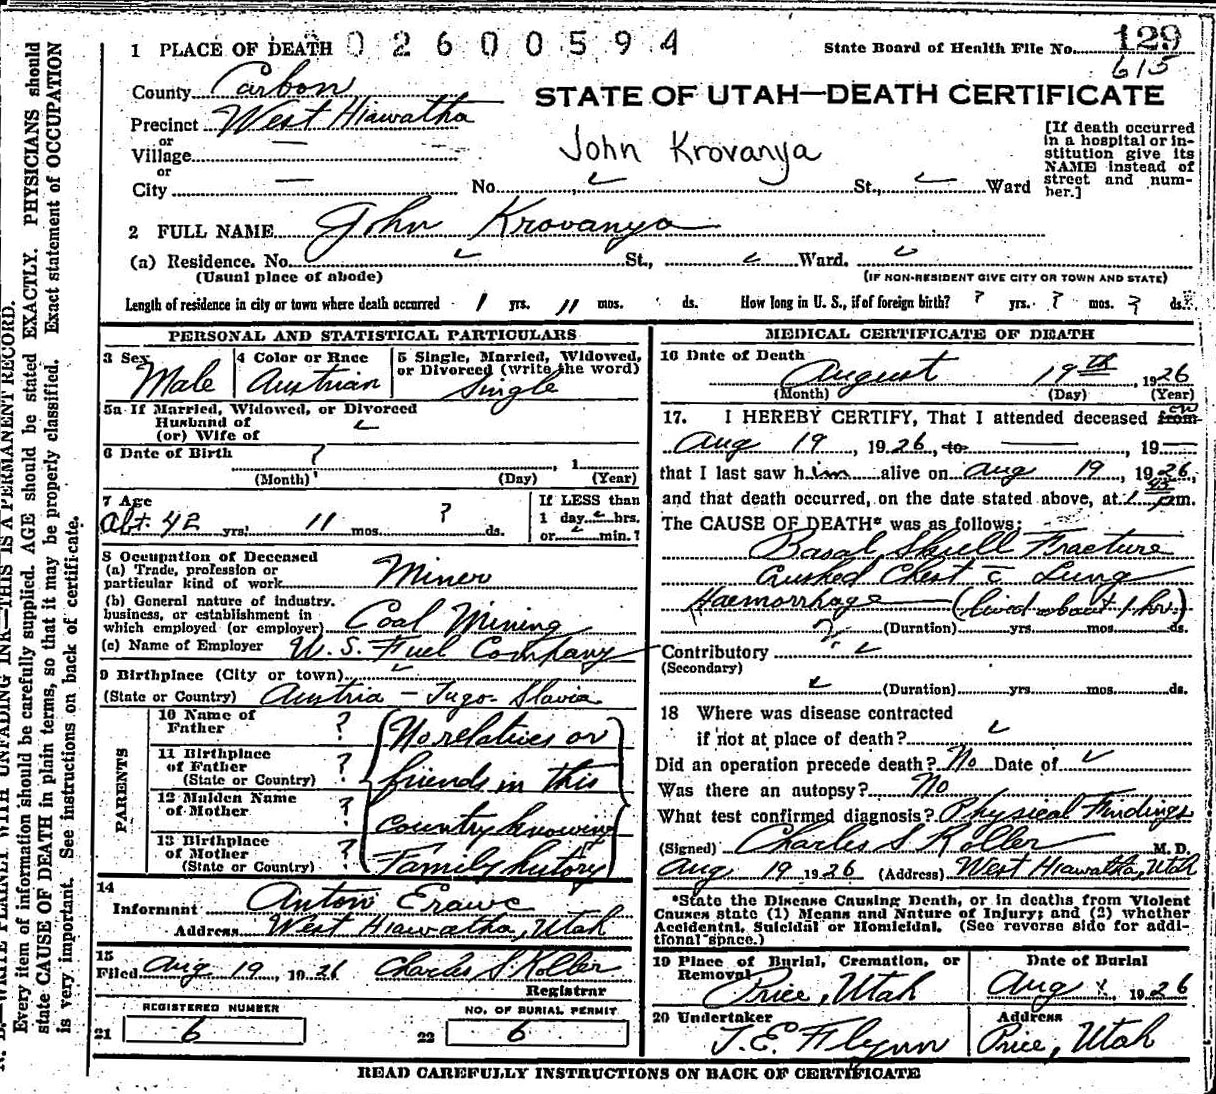 1 PLACE OF DEATH 0 2 6 0 0 5 9 4
State Board of Health File No. 129
615
County Carbon
STATE OF UTAH—DEATH CERTIFICATE
Precinct West Hiawatha
or
Village —
or
City — No. ✓ St., ✓ Ward
John Krovanya
[If death occurred in a hospital or institution give its NAME instead of street and number.]
2 FULL NAME John Krovanya
(a) Residence. No. ✓ St., ✓ Ward. ✓
(Usual place of abode) (IF NON-RESIDENT GIVE CITY OR TOWN AND STATE)
Length of residence in city or town where death occurred 1 yrs. 11 mos. ds. How long in U. S., if of foreign birth? ? yrs. ? mos. ? ds.
PERSONAL AND STATISTICAL PARTICULARS
3 Sex Male
4 Color or Race Austrian
5 Single, Married, Widowed, or Divorced (write the word) Single
5a If Married, Widowed, or Divorced
Husband of
(or) Wife of ✓
6 Date of Birth ? , 1
(Month) (Day) (Year)
7 Age
Abt. 42 yrs. 11 mos. ? ds.
If LESS than
1 day ✓ hrs.
or ✓ min.?
8 Occupation of Deceased
(a) Trade, profession or
particular kind of work Miner
(b) General nature of industry,
business, or establishment in
which employed (or employer) Coal Mining
(c) Name of Employer U. S. Fuel Company
9 Birthplace (City or town) ✓
(State or Country) Austria – Jugo-Slavia
PARENTS
10 Name of
Father ?
11 Birthplace
of Father
(State or Country) ?
12 Maiden Name
of Mother ?
13 Birthplace
of Mother
(State or Country) ?
No relatives or
friends in this
country knowing
Family history
14
Informant Anton
Address West Hiawatha, Utah
15
Filed Aug 19, 1926 Charles S. Koller
Registrar
REGISTERED NUMBER
21 6
NO. OF BURIAL PERMIT
22 6
MEDICAL CERTIFICATE OF DEATH
16 Date of Death
August 19th, 1926
(Month) (Day) (Year)
17. I HEREBY CERTIFY, That I attended deceased from on
Aug 19, 1926, to , 19
that I last saw him alive on Aug 19, 1926,
and that death occurred, on the date stated above, at 1 45 pm.
The CAUSE OF DEATH* was as follows:
Basal Skull Fracture
Crushed Chest c̄ Lung
Haemorrhage (lived about 1 hr.)
? (Duration) yrs. mos. ds.
Contributory ✓
(Secondary)
✓ (Duration) yrs. mos. ds.
18 Where was disease contracted
if not at place of death? ✓
Did an operation precede death? No Date of ✓
Was there an autopsy? No
What test confirmed diagnosis? Physical Findings
(Signed) Charles S Koller M. D.
Aug 19 1926 (Address) West Hiawatha, Utah
*State the Disease Causing Death, or in deaths from Violent
Causes state (1) Means and Nature of Injury; and (2) whether
Accidental, Suicidal or Homicidal. (See reverse side for addi-
tional space.)
19 Place of Burial, Cremation, or
Removal
Price, Utah
Date of Burial
Aug x, 1926
20 Undertaker
J. E. Flynn
Address
Price, Utah
READ CAREFULLY INSTRUCTIONS ON BACK OF CERTIFICATE
N. B.—WRITE PLAINLY WITH UNFADING INK—THIS IS A PERMANENT RECORD.
Every item of information should be carefully supplied. AGE should be stated EXACTLY. PHYSICIANS should
state CAUSE OF DEATH in plain terms, so that it may be properly classified. Exact statement of OCCUPATION
is very important. See instructions on back of certificate.